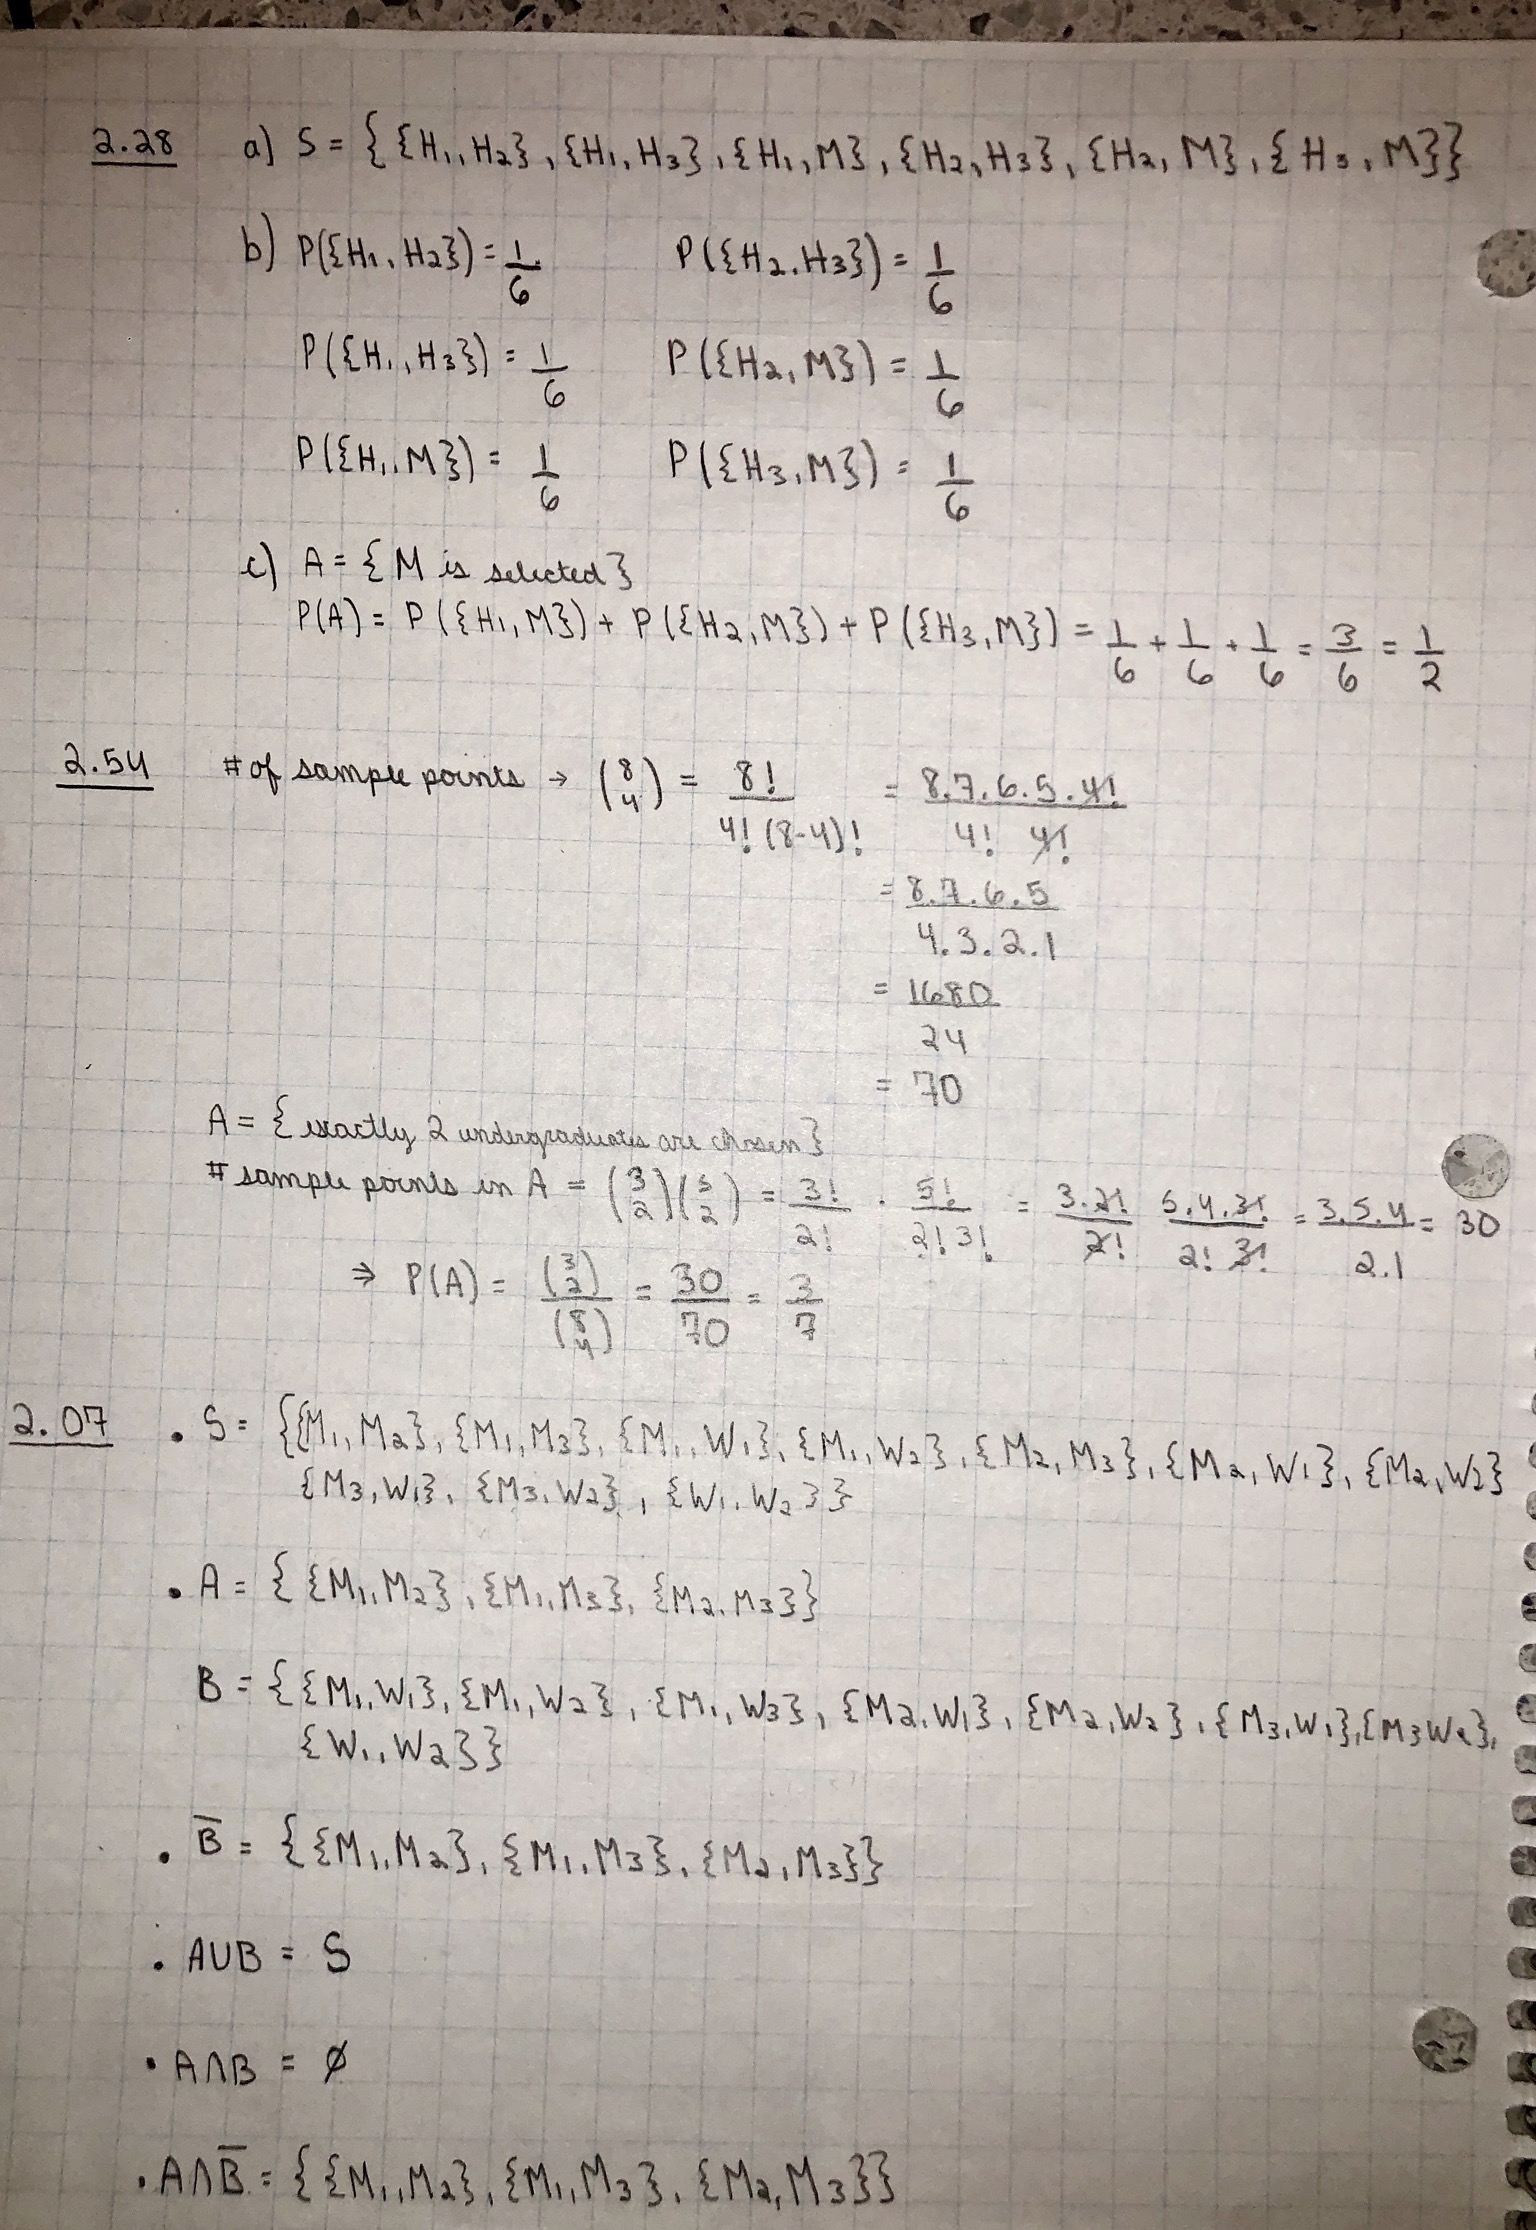 2.28 a) S = { {H₁, H₂}, {H₁, H₃}, {H₁, M}, {H₂, H₃}, {H₂, M}, {H₃, M}}
b) P({H₁, H₂}) = 1/6 P({H₂, H₃}) = 1/6
P({H₁, H₃}) = 1/6 P({H₂, M}) = 1/6
P({H₁, M}) = 1/6 P({H₃, M}) = 1/6
c) A = { M is selected }
P(A) = P({H₁, M}) + P({H₂, M}) + P({H₃, M}) = 1/6 + 1/6 + 1/6 = 3/6 = 1/2
2.54 # of sample points → (8 4) = 8!/4!(8-4)! = 8.7.6.5.4!/4! 4!
= 8.7.6.5/4.3.2.1
= 1680/24
= 70
A = { exactly 2 undergraduates are chosen }
# sample points in A = (3 2)(5 2) = 3!/2! · 5!/2! 3! = 3.2!/2! 5.4.3!/2! 3! = 3.5.4/2.1 = 30
⇒ P(A) = (3 2)/(8 4) = 30/70 = 3/7
2.07 • S = {{M₁, M₂}, {M₁, M₃}, {M₁, W₁}, {M₁, W₂}, {M₂, M₃}, {M₂, W₁}, {M₂, W₂}
{M₃, W₁}, {M₃, W₂}, {W₁, W₂}}
• A = { {M₁, M₂}, {M₁, M₃}, {M₂, M₃}}
B = {{M₁, W₁}, {M₁, W₂}, {M₁, W₃}, {M₂, W₁}, {M₂, W₂}, {M₃, W₁}, {M₃ W₂},
{W₁, W₂}}
• B̅ = { {M₁, M₂}, {M₁, M₃}, {M₂, M₃}}
• A∪B = S
• A∩B = ∅
• A∩B̅ = { {M₁, M₂}, {M₁, M₃}, {M₂, M₃}}